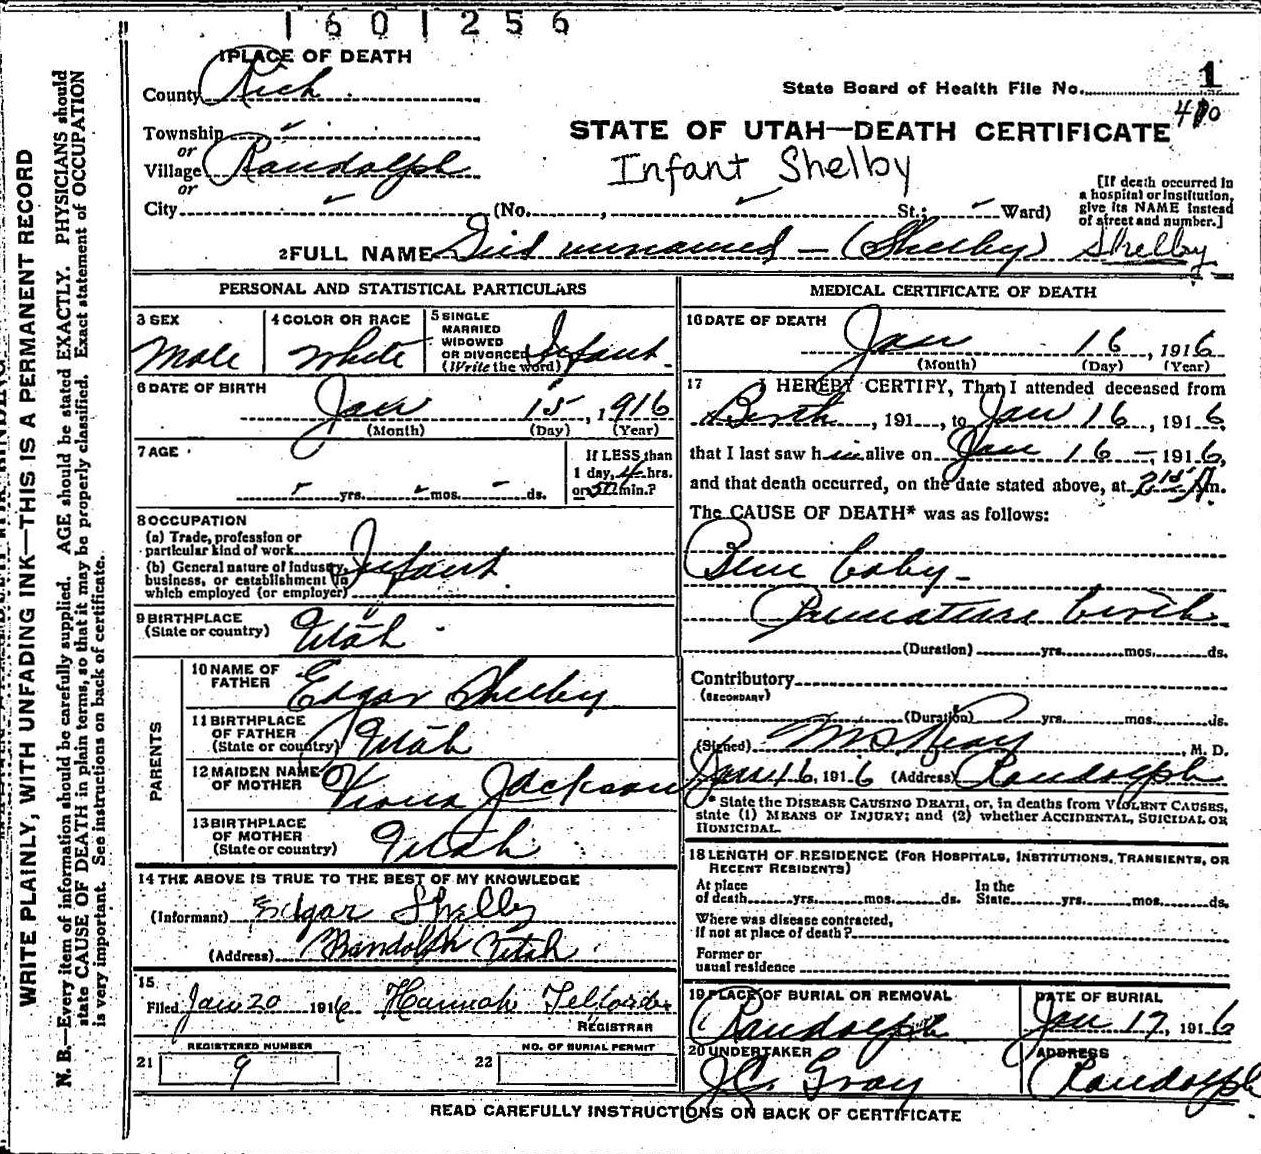 1601256
1 PLACE OF DEATH
County Rich
State Board of Health File No. 1
Township
or
Village Randolph
or
City (No. , St.; Ward)
STATE OF UTAH—DEATH CERTIFICATE
Infant Shelby
[If death occurred in
a hospital or institution,
give its NAME instead
of street and number.]
2 FULL NAME Died unnamed – (Shelby) Shelby
PERSONAL AND STATISTICAL PARTICULARS
3 SEX
Male
4 COLOR OR RACE
White
5 SINGLE
MARRIED
WIDOWED
OR DIVORCED
(Write the word) Infant
6 DATE OF BIRTH
Jan 15, 1916
(Month) (Day) (Year)
7 AGE
yrs. mos. ds.
If LESS than
1 day, 4 hrs.
or min.?
8 OCCUPATION
(a) Trade, profession or
particular kind of work
(b) General nature of industry,
business, or establishment in
which employed (or employer)
Infant
9 BIRTHPLACE
(State or country) Utah
PARENTS
10 NAME OF
FATHER Edgar Shelby
11 BIRTHPLACE
OF FATHER
(State or country) Utah
12 MAIDEN NAME
OF MOTHER Jackson
13 BIRTHPLACE
OF MOTHER
(State or country) Utah
14 THE ABOVE IS TRUE TO THE BEST OF MY KNOWLEDGE
(Informant) Edgar Shelby
(Address) Randolph Utah
15
Filed Jan 20 1916 Hannah
REGISTRAR
REGISTERED NUMBER
21 9
NO. OF BURIAL PERMIT
22
MEDICAL CERTIFICATE OF DEATH
16 DATE OF DEATH
Jan 16, 1916
(Month) (Day) (Year)
17 I HEREBY CERTIFY, That I attended deceased from
Birth, 191 , to Jan 16, 1916,
that I last saw him alive on Jan 16 –, 1916,
and that death occurred, on the date stated above, at m.
The CAUSE OF DEATH* was as follows:
Blue baby –
Premature birth
(Duration) yrs. mos. ds.
Contributory
(SECONDARY)
(Duration) yrs. mos. ds.
(Signed) , M. D.
Jan 16, 1916 (Address) Randolph
* State the DISEASE CAUSING DEATH, or, in deaths from VIOLENT CAUSES,
state (1) MEANS OF INJURY; and (2) whether ACCIDENTAL, SUICIDAL OR
HOMICIDAL.
18 LENGTH OF RESIDENCE (FOR HOSPITALS, INSTITUTIONS, TRANSIENTS, OR
RECENT RESIDENTS)
At place
of death yrs. mos. ds.
In the
State yrs. mos. ds.
Where was disease contracted,
if not at place of death?
Former or
usual residence
19 PLACE OF BURIAL OR REMOVAL
Randolph
DATE OF BURIAL
Jan 17, 1916
20 UNDERTAKER
J.C. Gray
ADDRESS
Randolph
READ CAREFULLY INSTRUCTIONS ON BACK OF CERTIFICATE
WRITE PLAINLY, WITH UNFADING INK—THIS IS A PERMANENT RECORD
N. B.—Every item of information should be carefully supplied. AGE should be stated EXACTLY. PHYSICIANS should
state CAUSE OF DEATH in plain terms, so that it may be properly classified. Exact statement of OCCUPATION
is very important. See instructions on back of certificate.